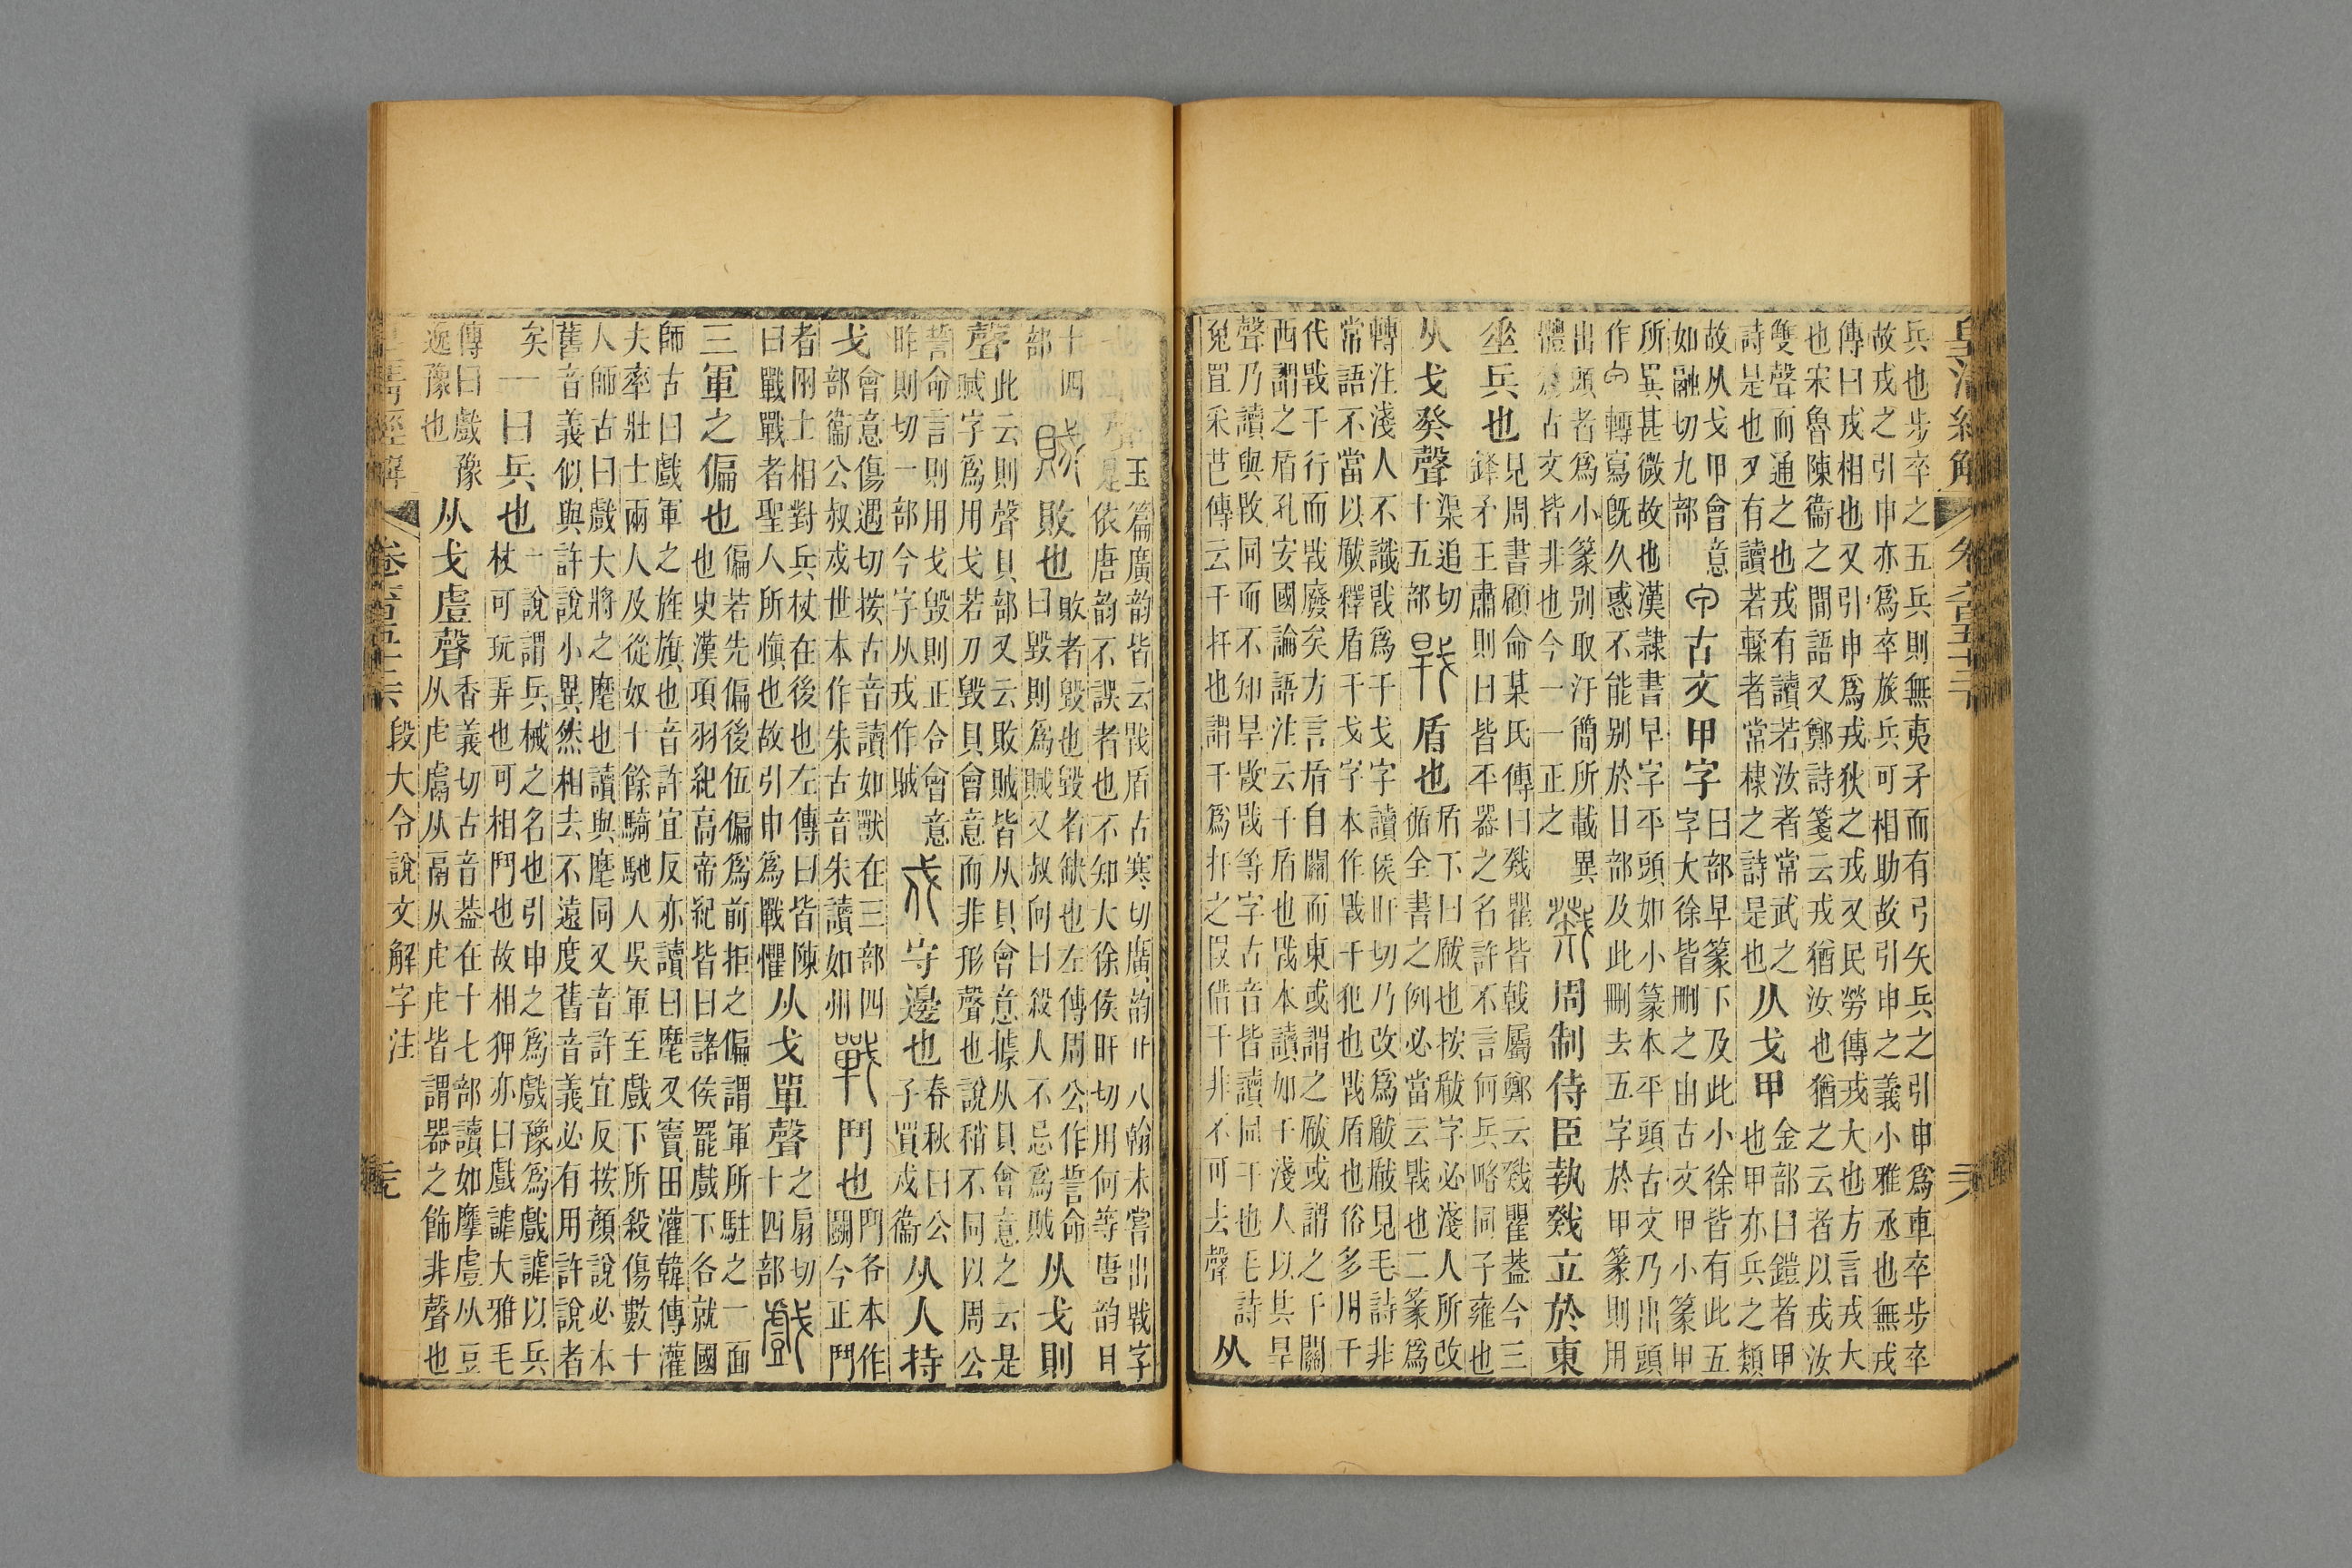 皇清經解
兵也步卒之五兵則無夷矛而有弓矢兵之引申爲車卒步卒
故戎之引申亦爲卒旅兵可相助故引申之義小雅丞也無戎
傳曰戎相也又引申爲戎狄之戎又民勞傳戎大也方言戎大
也宋魯陳衞之閒語又鄭詩箋云戎猶汝也猶之云者以戎汝
雙聲而通之也戎有讀若汝者常武之
詩是也又有讀若輮者常棣之詩是也
从戈甲
金部曰鎧者甲
也甲亦兵之類
故从戈甲會意
如融切九部
古文甲字
曰部早篆下及此小徐皆有此五
字大徐皆刪之由古文甲小篆甲
所異甚微故也漢隸書早字平頭如小篆本平頭古文乃出頭
作轉寫旣久惑不能别於日部及此刪去五字於甲篆則用
出頭者爲小篆别取汗簡所載異
體爲古文皆非也今一一正之
戣周制侍臣執戣立於東
垂兵也
見周書顧命某氏傳曰戣瞿皆戟屬鄭云戣瞿葢今三
鋒矛王肅則曰皆兵器之名許不言何兵略同子雍也
从戈癸聲
渠追切
十五部
𢧕盾也
盾下曰瞂也按瞂字必淺人所改
循全書之例必當云𢧕也二篆爲
轉注淺人不識𢧕爲干戈字讀侯旰切乃改爲瞂瞂見毛詩非
常語不當以瞂釋盾干戈字本作𢧕干犯也𢧕盾也俗多用干
代𢧕干行而𢧕廢矣方言盾自關而東或謂之瞂或謂之干關
西謂之盾孔安國論語注云干盾也𢧕本讀如干淺人以其旱
聲乃讀與㪋同而不知旱㪋𢧕等字古音皆讀同干也毛詩
兔罝采芑傳云干扞也謂干爲扞之叚借干非不可去聲
从
玉篇廣韵皆云𢧕盾古寒切廣韵廿八翰未嘗出𢧕字
依唐韵不誤者也不知大徐侯旰切用何等唐韵曰
十四
部
賊敗也
敗者毀也毀者缺也左傳周公作誓命
曰毀則爲賊又叔向曰殺人不忌爲賊
从戈則
聲
此云則聲貝部又云敗賊皆从貝會意據从貝會意之云是
賊字爲用戈若刀毀貝會意而非形聲也說稍不同以周公
誓命言則用戈毀則正合會意
昨則切一部今字从戎作賊
戍守邊也
春秋曰公
子買戍衞
从人持
戈
會意傷遇切按古音讀如獸在三部
部衞公叔戍世本作朱古音朱讀如州
四
戰鬥也
鬥各本作
鬭今正鬥
者兩士相對兵杖在後也左傳曰皆陳
曰戰戰者聖人所愼也故引申爲戰懼
从戈單聲
之扇切
十四部
戲
三軍之偏也
偏若先偏後伍偏爲前拒之偏謂軍所駐之一面
也史漢項羽紀高帝紀皆曰諸侯罷戲下各就國
師古曰戲軍之旌旗也音許宜反亦讀曰麾又竇田灌韓傳灌
夫率壯士兩人及從奴十餘騎馳人吳軍至戲下所殺傷數十
人師古曰戲大將之麾也讀與麾同又音許宜反按顏說必本
舊音義似與許說小異然相去不遠度舊音義必有用許說者
矣
一曰兵也
一說謂兵械之名也引申之爲戲豫爲戲謔以兵
杖可玩弄也可相鬥也故相狎亦曰戲謔大雅毛
傳曰戲豫
逸豫也
从戈䖒聲
香義切古音葢在十七部讀如摩䖒从豆
从虍鬳从鬲从虍虍皆謂器之飾非聲也
段大令說文解字注